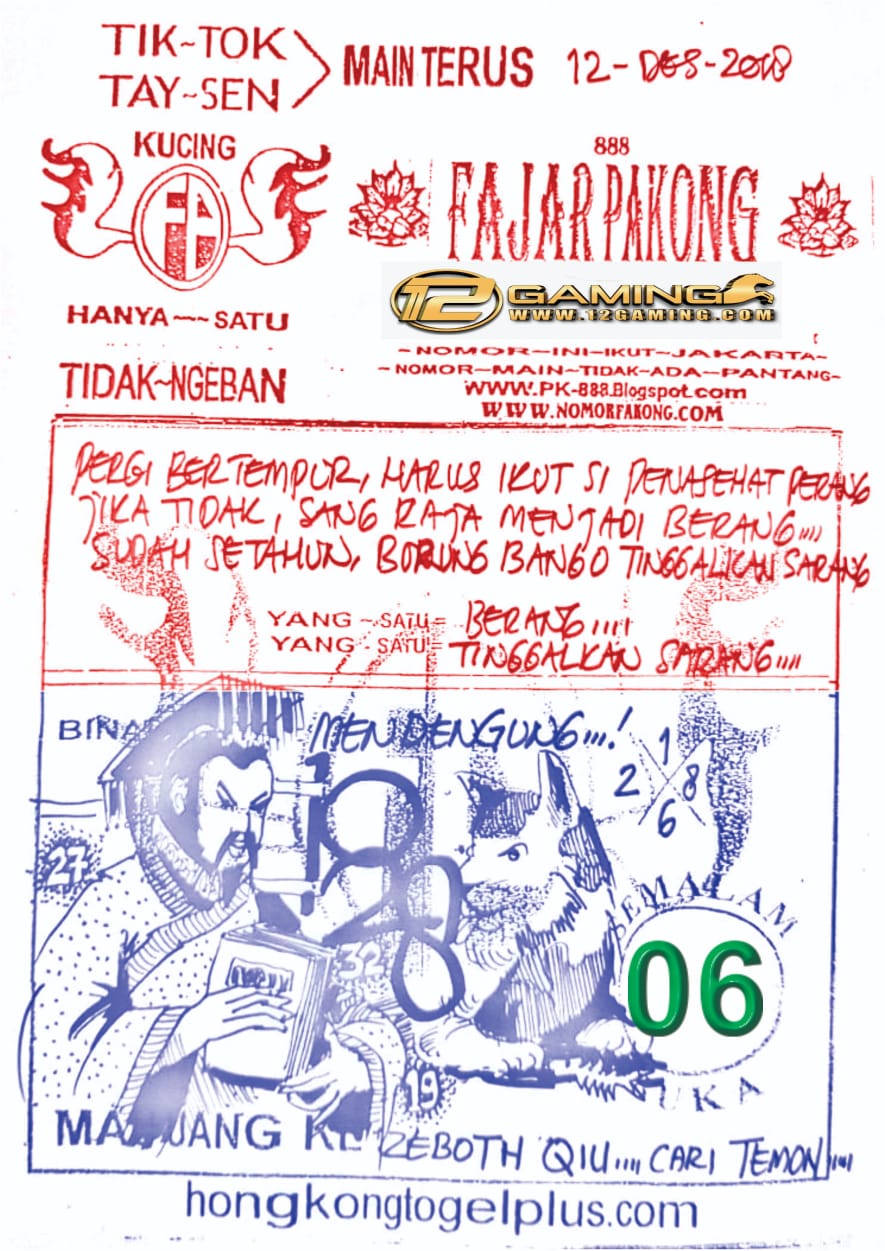 TIK~TOK
TAY~SEN
MAIN TERUS 12-DES-2018
KUCING
FA
HANYA~~SATU
TIDAK~NGEBAN
888
FAJAR PAKONG
12 GAMING
WWW.12GAMING.COM
~NOMOR~INI~IKUT~JAKARTA~
~NOMOR~MAIN~TIDAK~ADA~PANTANG~
WWW.PK-888.Blogspot.com
WWW.NOMORFAKONG.COM
PERGI BERTEMPUR, HARUS IKUT SI PENASEHAT PERANG
JIKA TIDAK, SANG RAJA MENJADI BERANG....
SUDAH SETAHUN, BORUNG BANGO TINGGALKAN SARANG
YANG ~ SATU = BERANG.....
YANG - SATU = TINGGALKAN SARANG....
BINA
MENDENGUNG...!
1
2 8
6
27
32
19
SEMALAM
06
UKA
ZEBOTH QIU.... CARI TEMON....
hongkongtogelplus.com